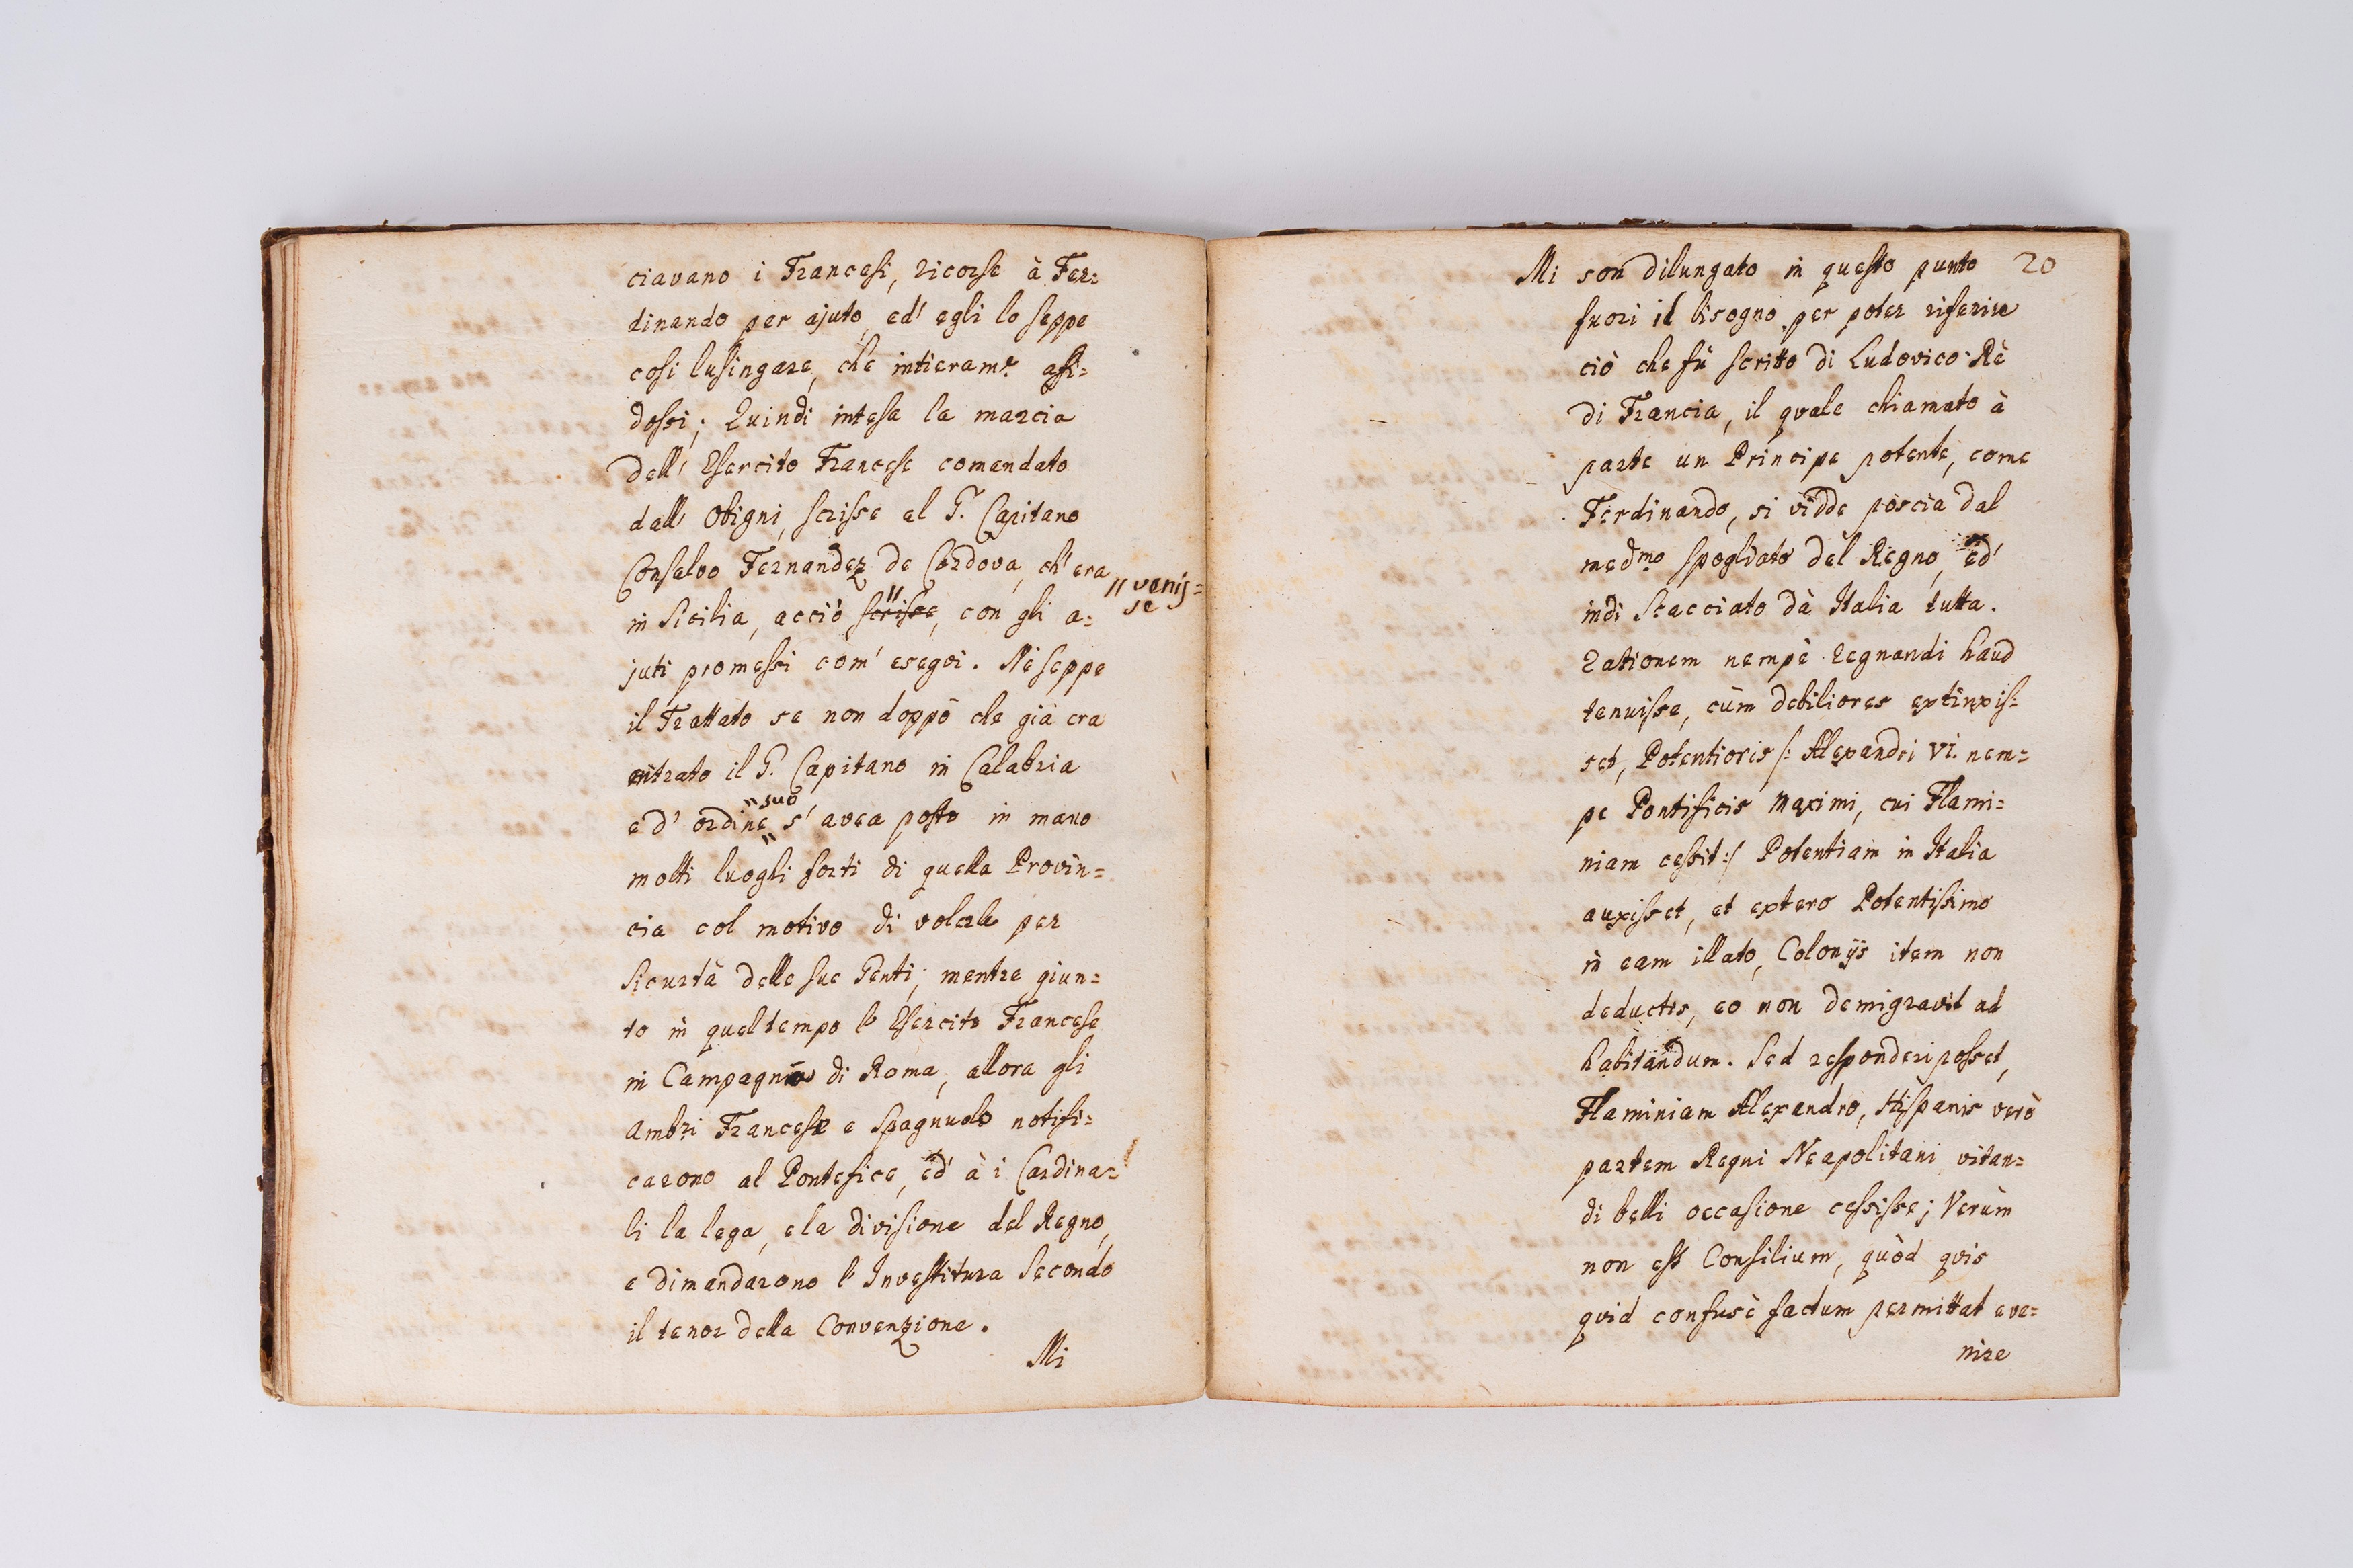 ciavano i Francesi, ricorse à Fer=
dinando per ajuto, ed' egli lo seppe
cosi lusingare, che intieram.e affi=
dossi; Quindi intesa la marcia
dell' Esercito Francese comandato
dall' Obigni, scrisse al G. Capitano
Consalvo Fernandez de Cordova, ch' era
in Sicilia, acciò scrisse, con gli a=
" venis=
se
juti promessi com' eseguì. Nè seppe
il Trattato se non doppò che già era
entrato il G. Capitano in Calabria
" suo
e d' ordine s' avea posto in mano
molti luoghi forti di quella Provin=
cia col motivo di volerle per
sicurtà delle sue Genti; mentre giun=
to in quel tempo l' Esercito Francese
in Campagna di Roma, allora gli
Ambri Francese e Spagnuolo notifi=
carono al Pontefice, ed' à i Cardina=
li la lega, e la divisione del Regno,
e dimandarono l' Investitura secondo
il tenor della Convenzione.
Mi
20
Mi son dilungato in questo punto
fuori il bisogno per poter riferire
ciò che fù scritto di Ludovico Rè
di Francia, il quale chiamato à
parte un Principe potente, come
Ferdinando, si vidde poscia dal
medmo spogliato del Regno, ed'
indi scacciato dà Italia tutta.
Rationem nempè regnandi haud
tenuisse, cùm debiliores extinxis=
set, Potentioris /: Alexandri VI. nem=
pe Pontificis Maximi, cui Flami=
niam cessit :/ Potentiam in Italia
auxisset, et extero Potentissimo
in eam illato, Colonijs item non
deductis, eo non demigravit ad
habitandum. Sed responderi posset,
Flaminiam Alexandro, Hispanis verò
partem Regni Neapolitani vitan=
di belli occasione cessisse; Verùm
non est Consilium, quòd quis
quid confusè factum permittat eve=
nire